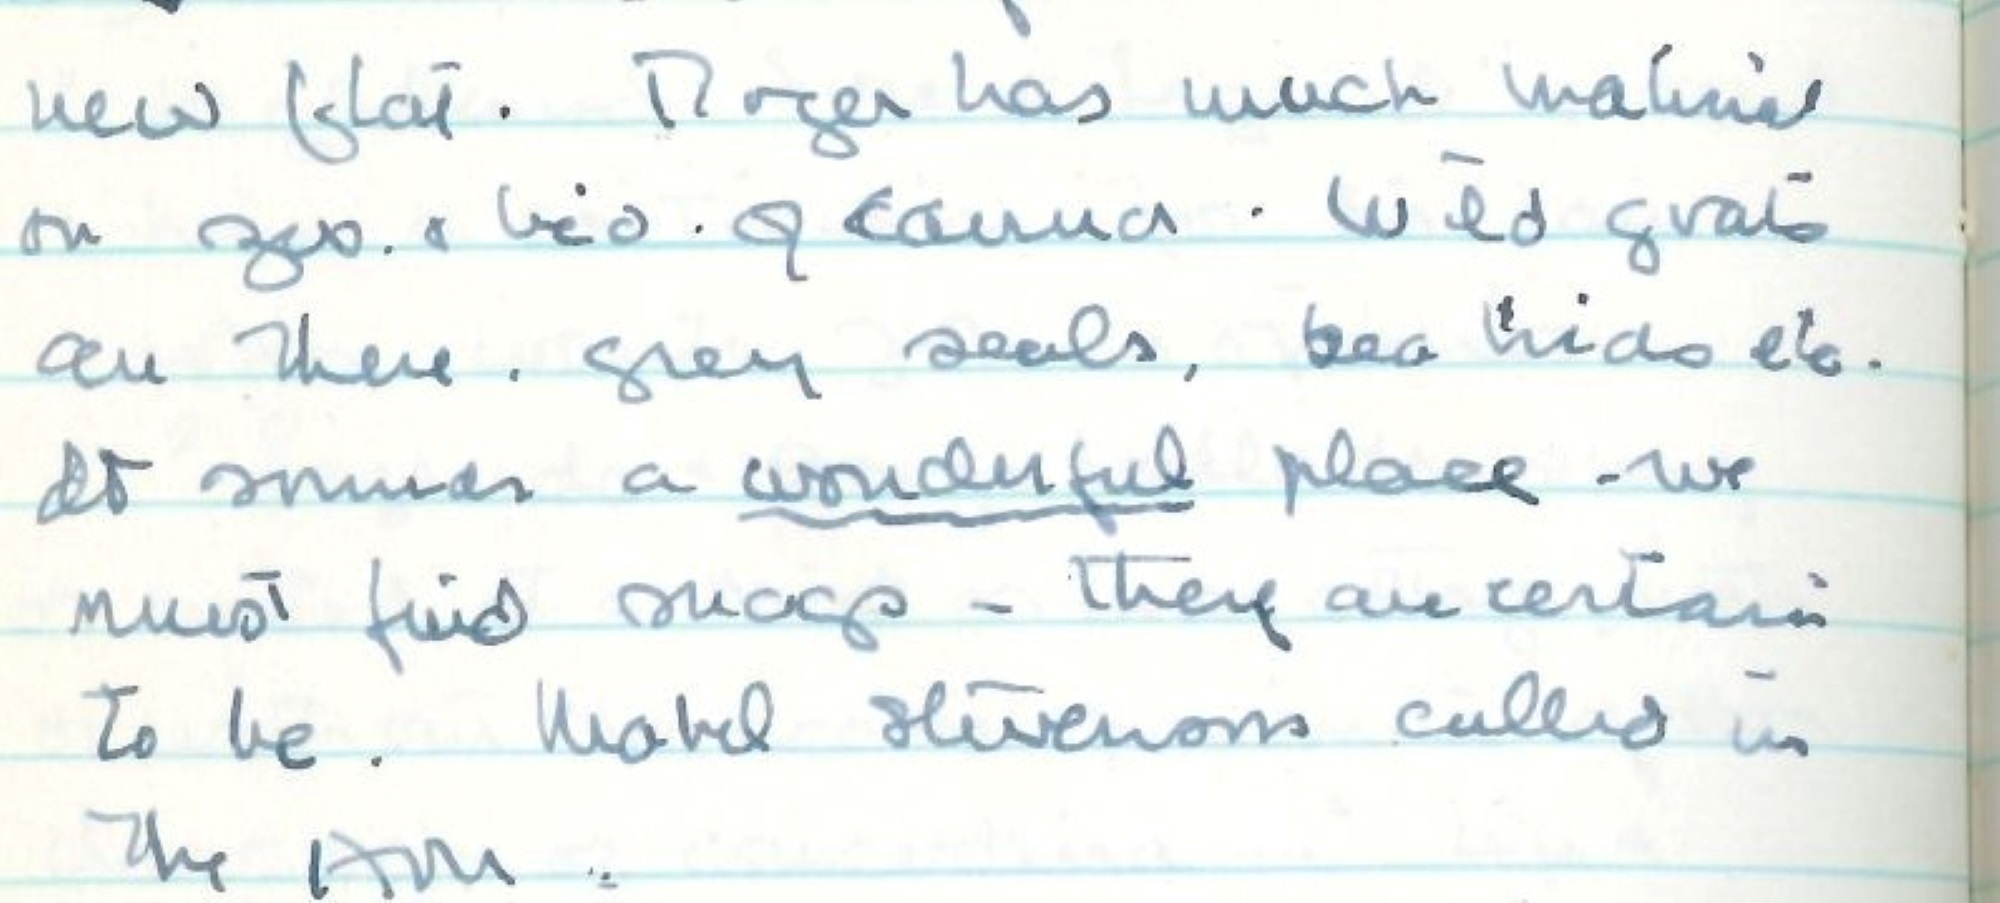 new flat. Roger has much material
on geo. & bio. of Canna. Wild goats
are there, grey seals, sea birds etc.
It sounds a wonderful place - we
must find snags - they are certain
to be. Mabel Stevenson called in
the